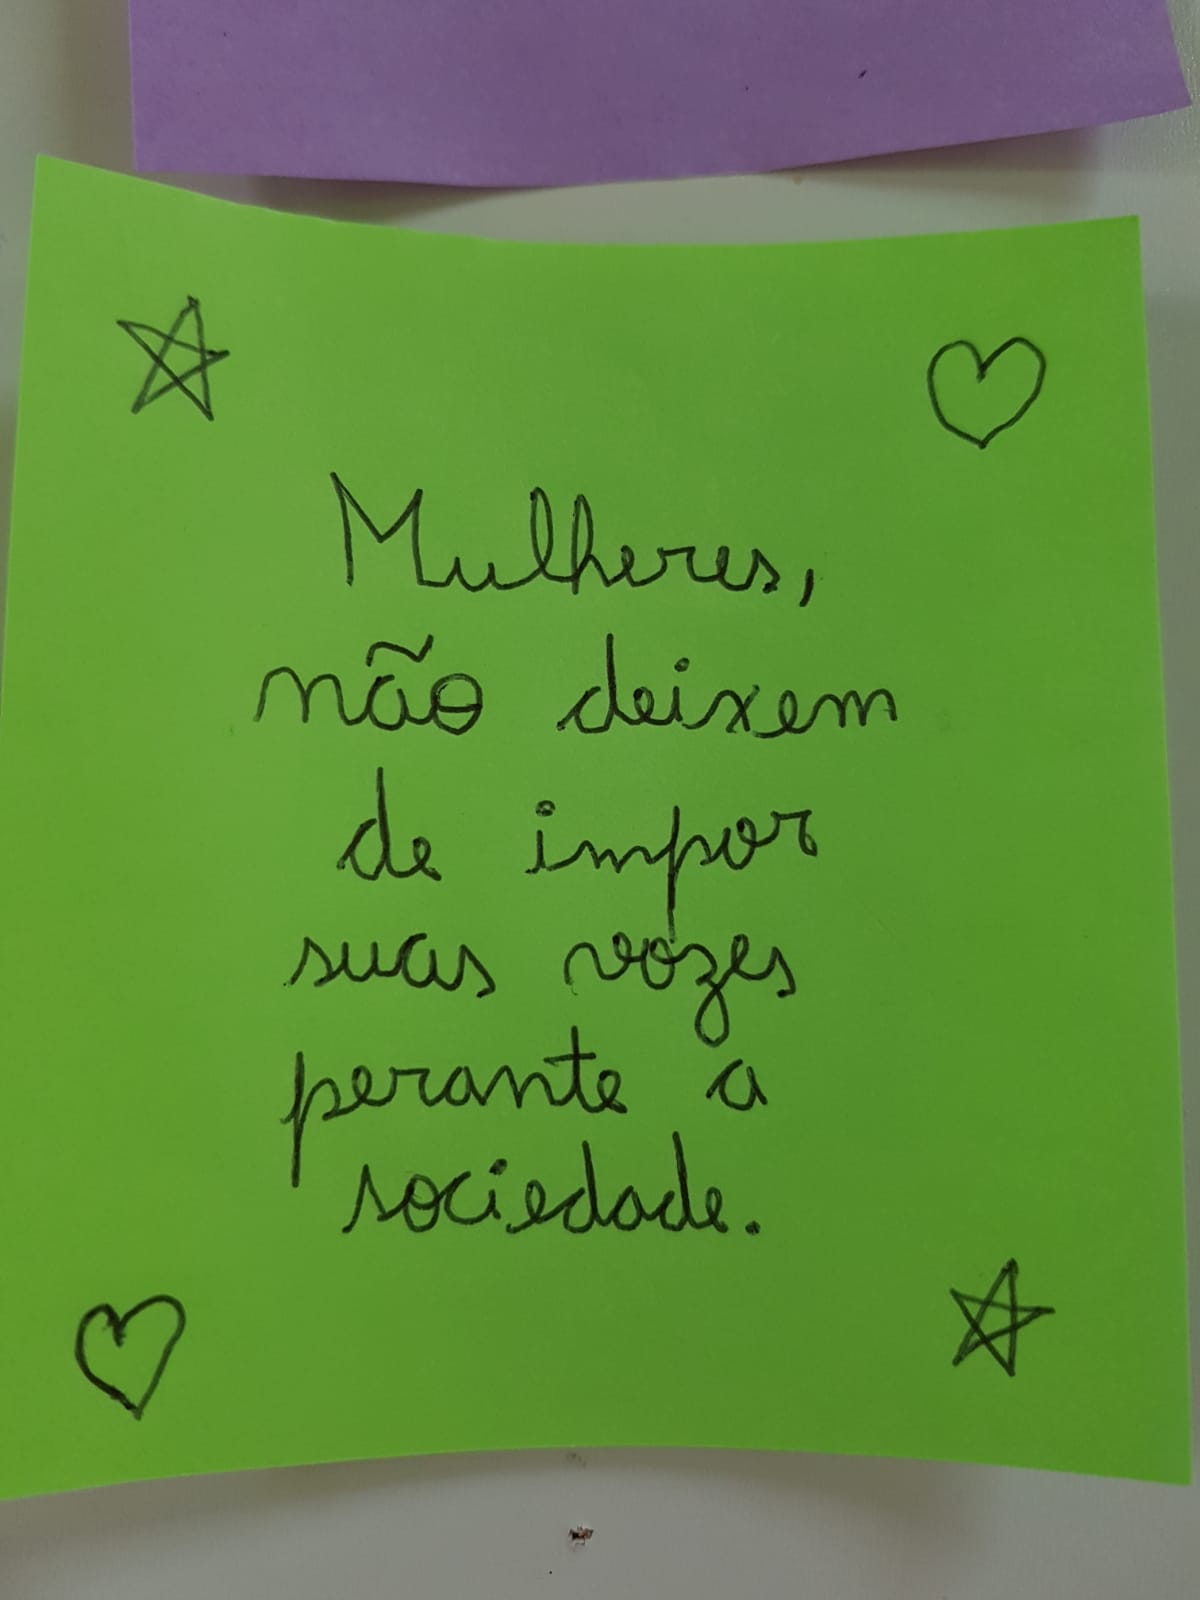 Mulheres,
não deixem
de impor
suas vozes
perante a
sociedade.